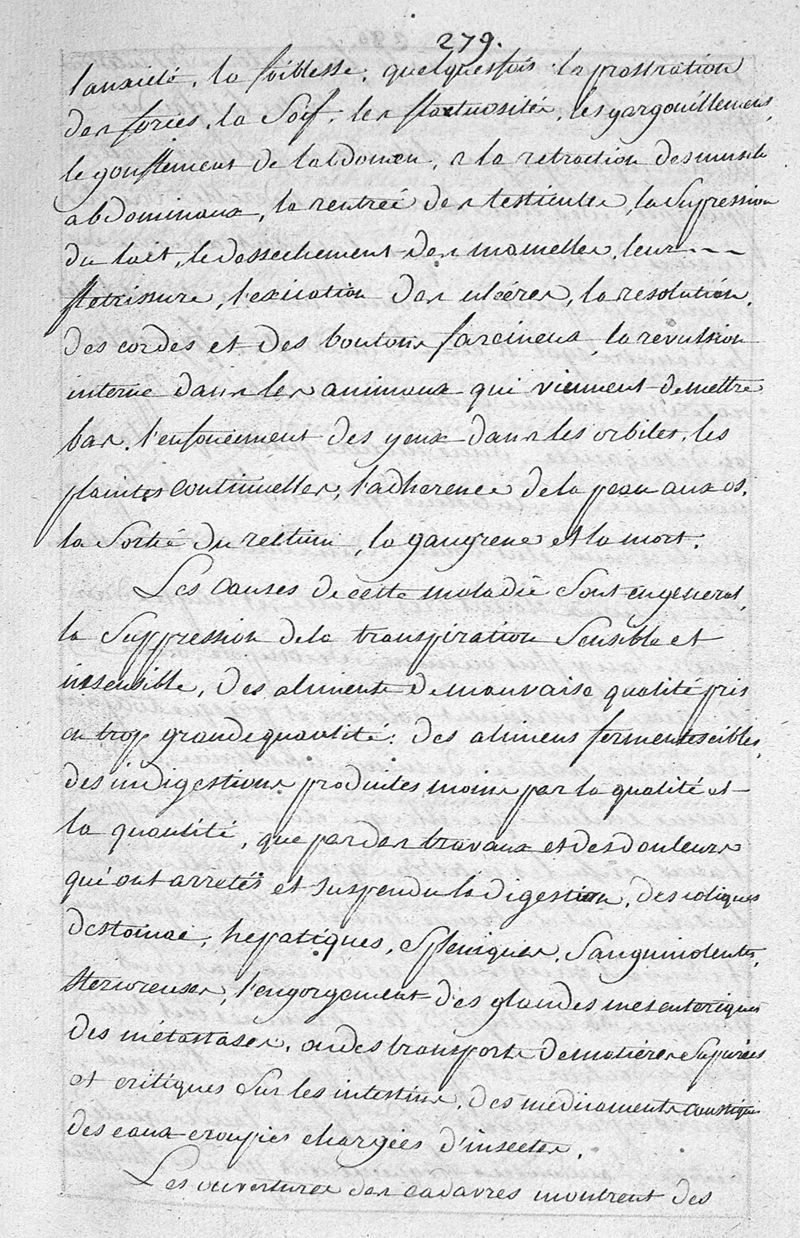 279.
l'anxieté, la foiblesse, quelquesfois la prostration
des forces, la Soif, les flactuosités, les gargouillemens,
le gonflement de l'abdomen, & la retraction des muscles
abdominaux, la rentrée des testicules, la Supression
du lait, le dessechement des mamelles, leur
fletrissure, l'exication des ulcéres, la resolution,
des cordes et des boutons farcineux, la revulsion
interne dans les animaux qui viennent de mettre
bas. l'enfoncement des yeux dans les orbites, les
plaintes continuelles, l'adherence de la peau aux os.
la Sortie du rectum, la gangrene et la mort.
Les causes de cette maladie Sont en general,
la Suppression de la transpiration Sensible et
insensible, des aliments de mauvaise qualité pris
en trop grande quantité: des alimens fermentescibles,
des indigestions produites moins par la qualité et
la quantité, que par des travaux et des douleurs
qui ont arretés et suspendu la digestion, des coliques
d'estomac, hepatiques, Spleniques, Sanguinolentes,
Stercoreuses, l'engorgement des glandes mesenteriques
des métastases, ou des transports de matières Supurées
et critiques Sur les intestins, des medicaments caustiques
des eaux croupies chargées d'insectes.
Les ouvertures des cadavres montrent des